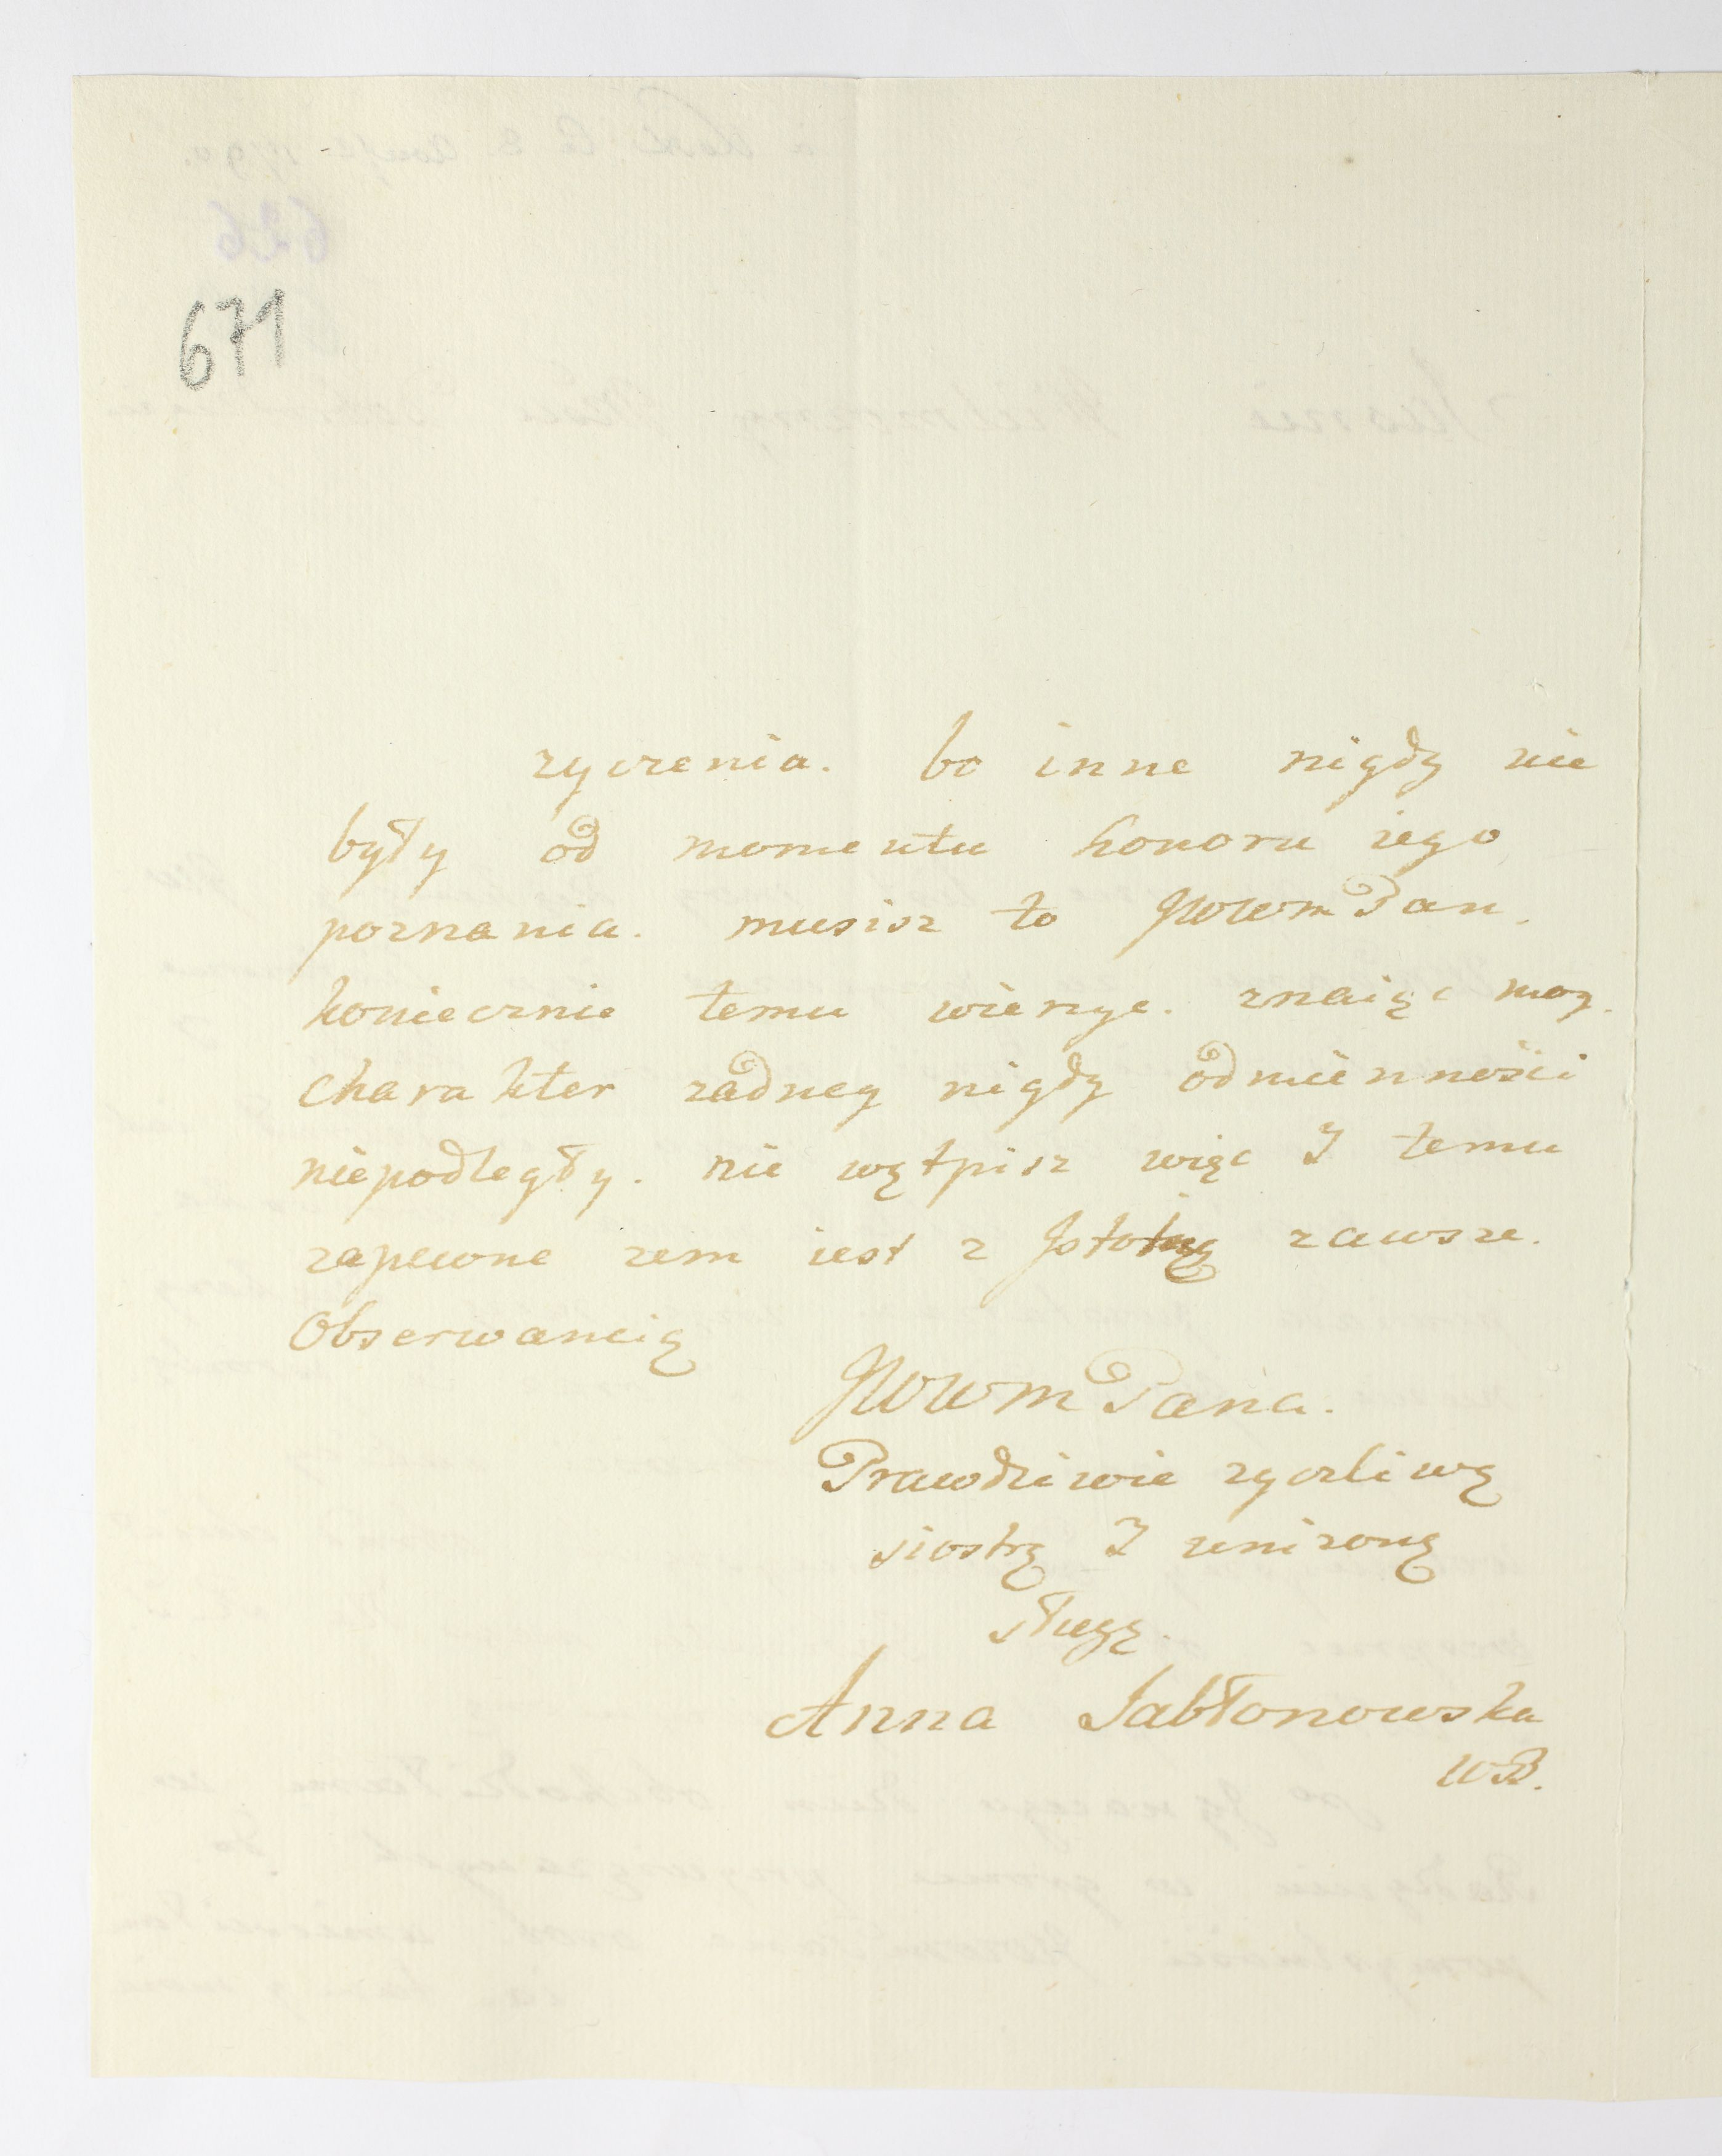 671
zyczenia. bo inne nigdy nie
były od momentu honoru iego
poznania. musisz to JWWM Pan.
koniecznie temu wierzyc. znaiąc moy.
charakter zadney nigdy odmiennosci
niepodległy. nie wątpisz więc I temu
zapewne zem iest z Jstotną zawsze.
Obserwancią
JWWM Pana.
Prawdziwie zyczliwą
siostrą I unizoną
sługą.
Anna Jabłonowska
WB.